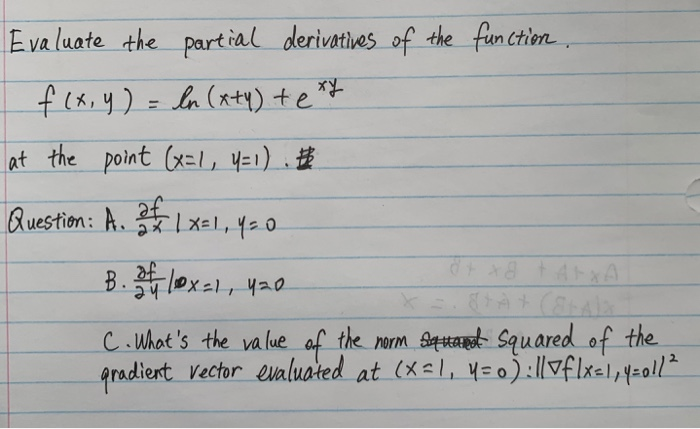 Evaluate the partial derivatives of the function.
f(x,y) = ln(x+y) + e^xy
at the point (x=1, y=1).
Question: A. ∂f/∂x | x=1, y=0
B. ∂f/∂y | x=1, y=0
C. What's the value of the norm squared of the
gradient vector evaluated at (x=1, y=0): ||∇f|x=1,y=0||²